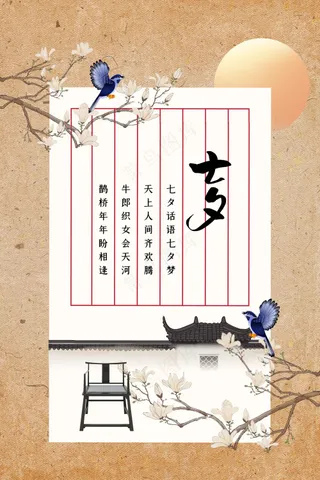 七夕
七夕话语七夕梦
天上人间齐欢腾
牛郎织女会天河
鹊桥年年盼相逢